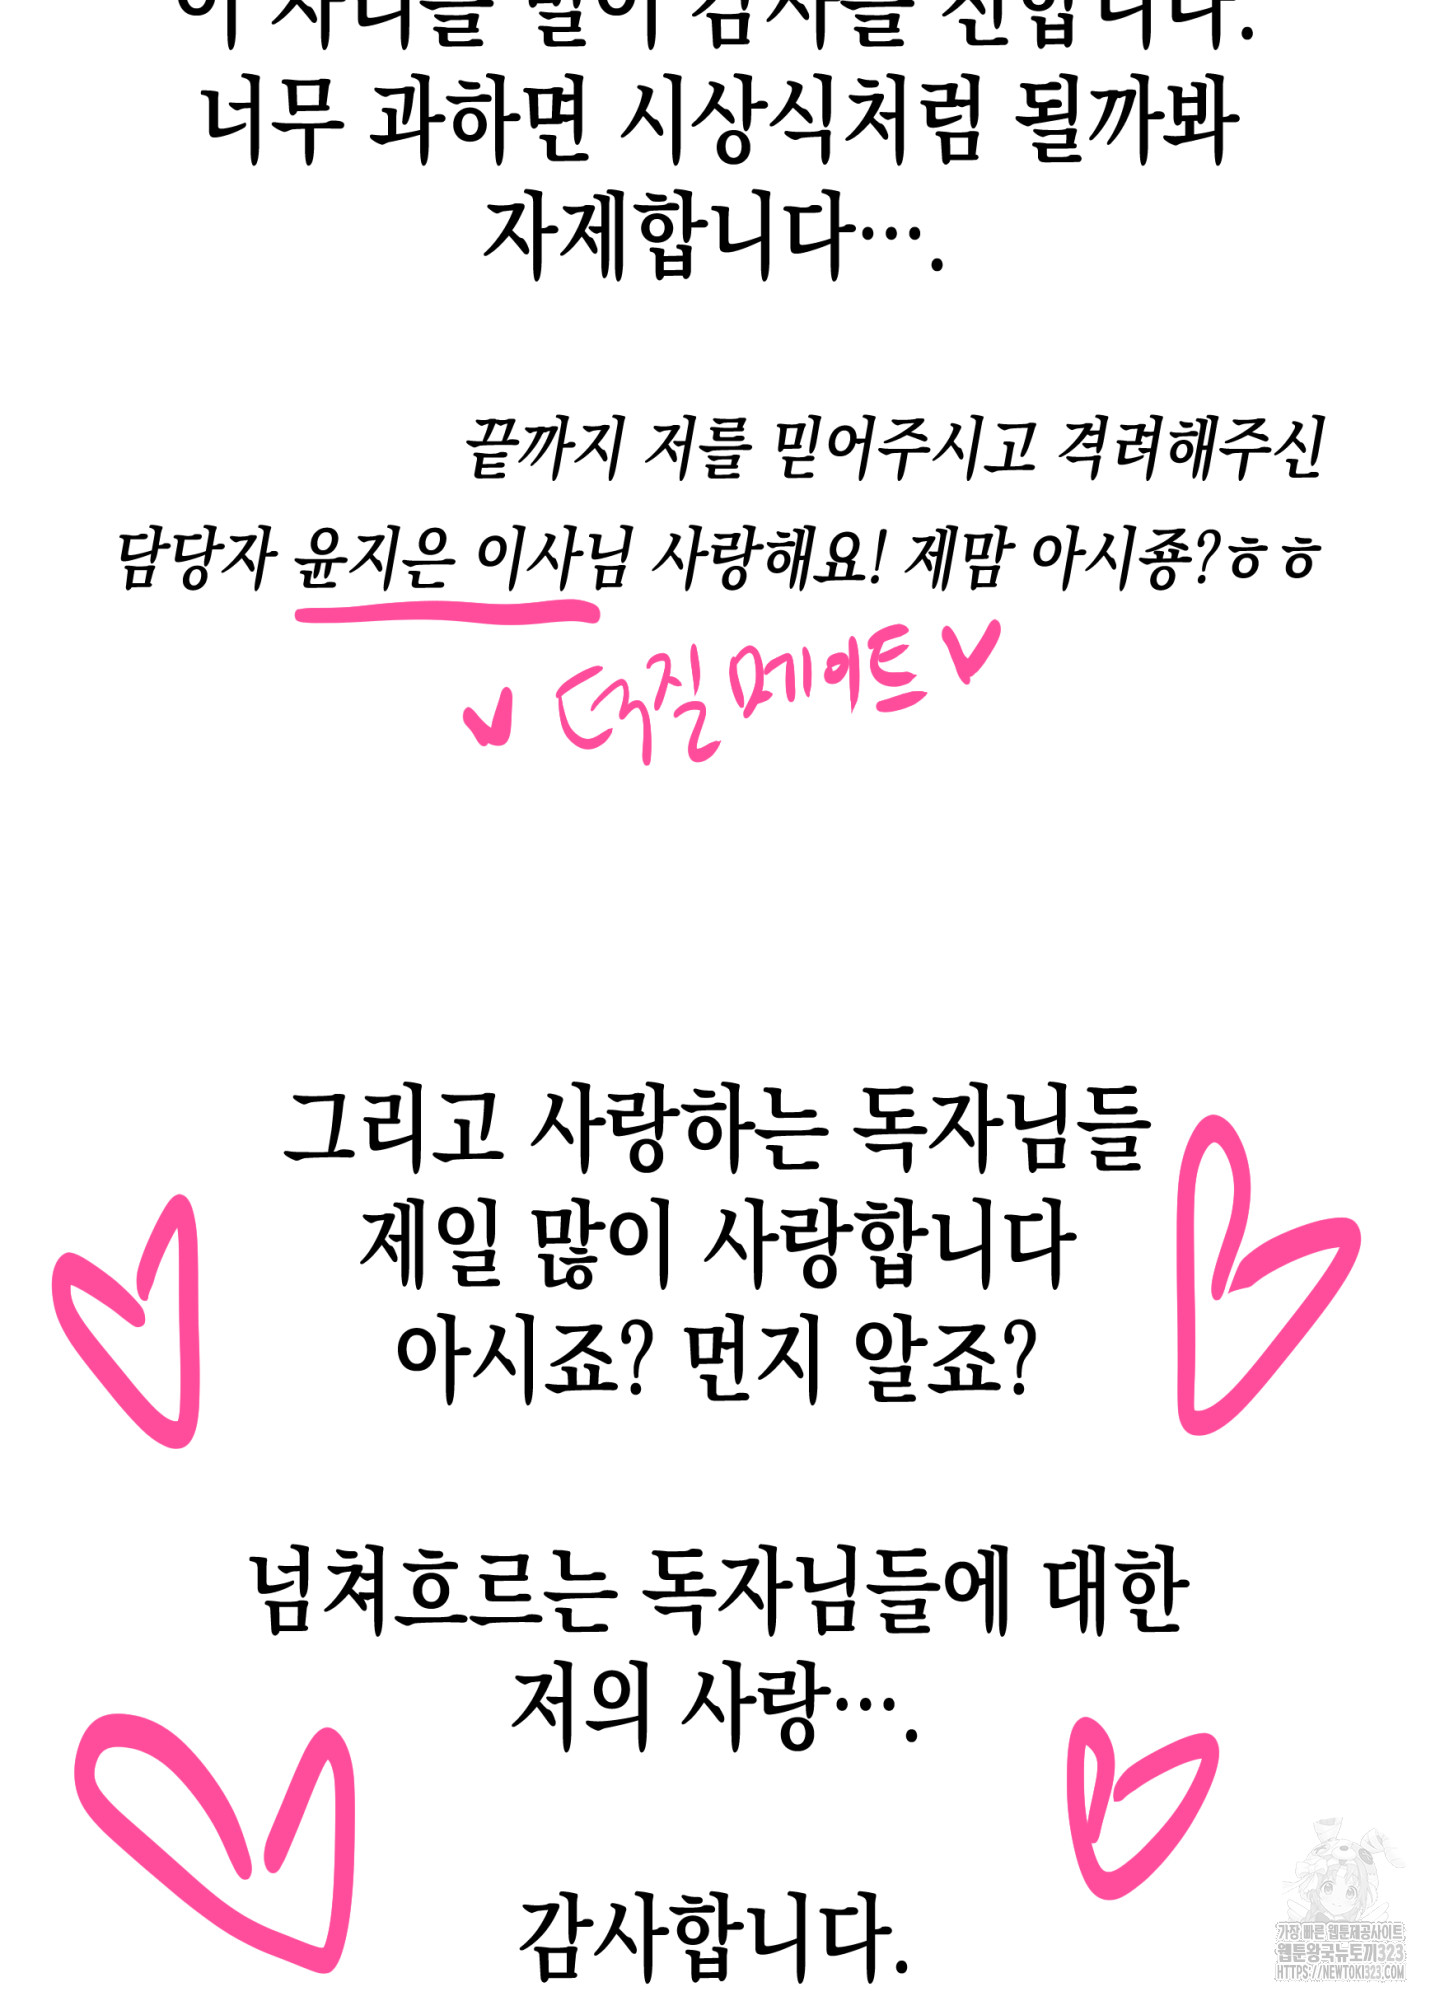 이 자리를 빌어 감사를 전합니다.
너무 과하면 시상식처럼 될까봐
자제합니다….
끝까지 저를 믿어주시고 격려해주신
담당자 윤지은 이사님 사랑해요! 제맘 아시죵?ㅎㅎ
덕질메이트
그리고 사랑하는 독자님들
제일 많이 사랑합니다
아시죠? 먼지 알죠?
넘쳐흐르는 독자님들에 대한
저의 사랑….
감사합니다.
가장 빠른 웹툰제공사이트
웹툰왕국뉴토끼323
HTTPS://NEWTOKI323.COM